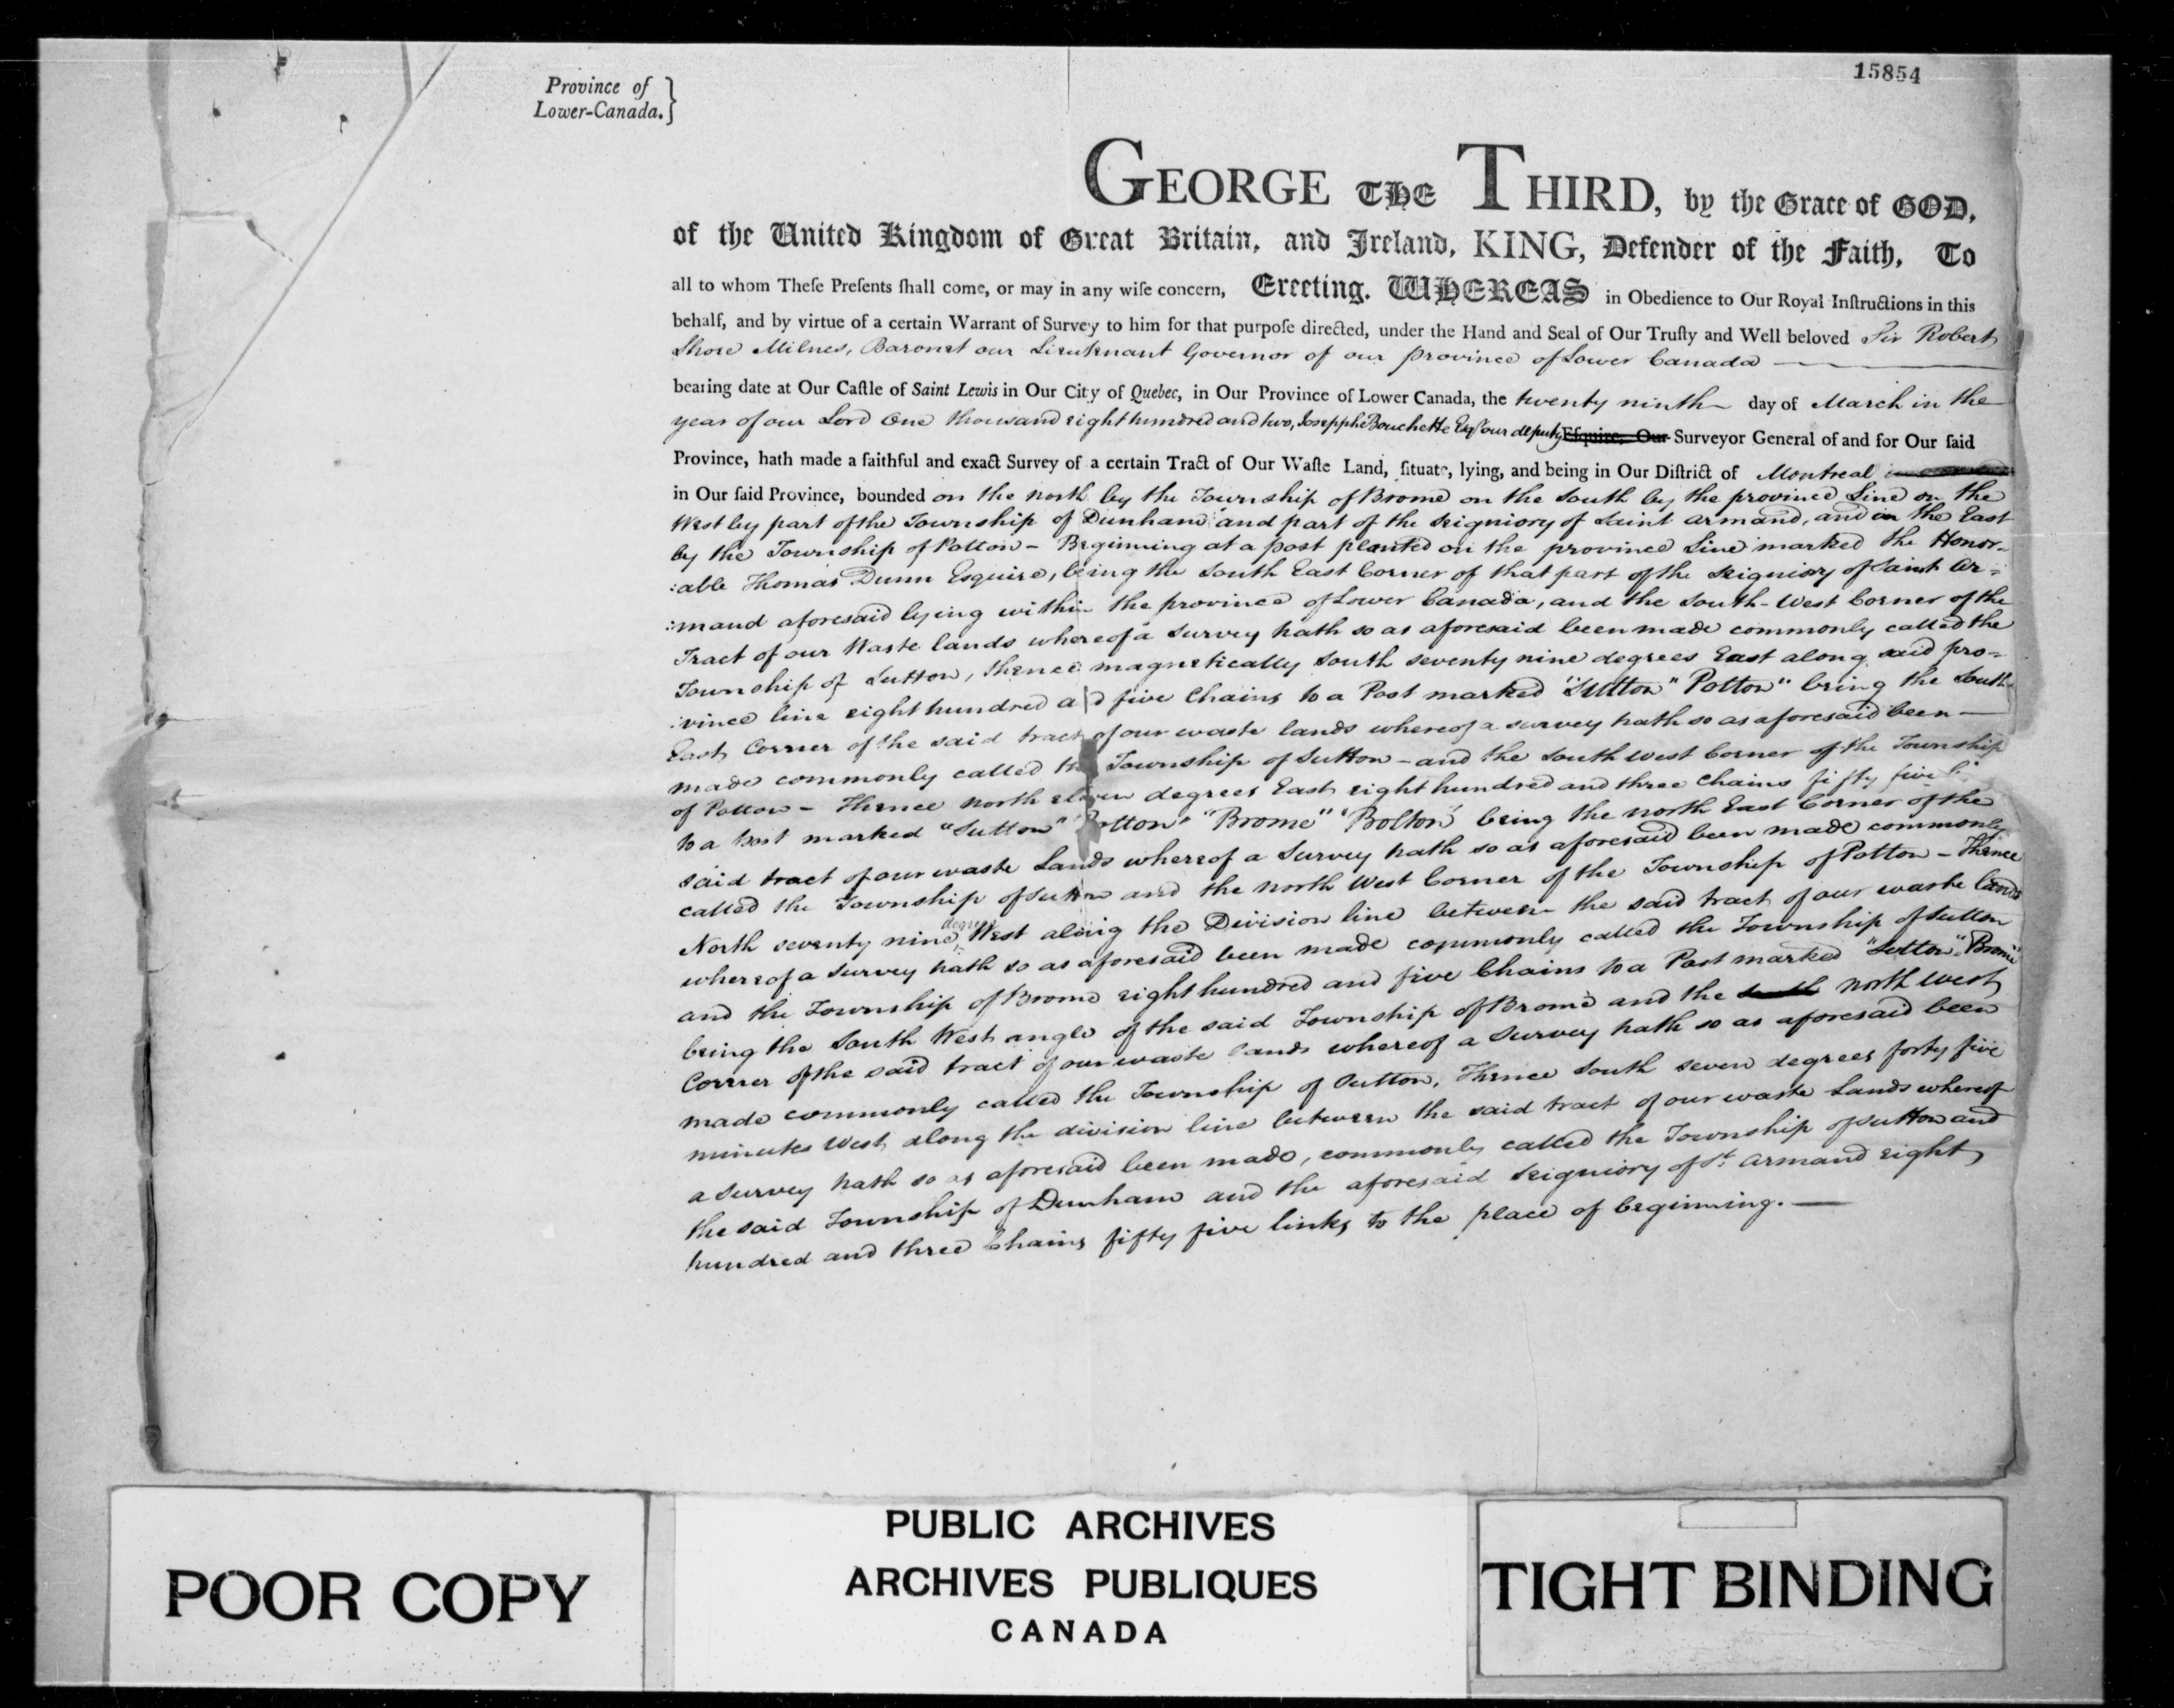 15854
Province of
Lower-Canada.}
GEORGE THE THIRD, by the Grace of GOD,
of the United Kingdom of Great Britain, and Ireland, KING, Defender of the Faith, To
all to whom Theſe Preſents ſhall come, or may in any wiſe concern, Greeting. WHEREAS in Obedience to Our Royal Inſtructions in this
behalf, and by virtue of a certain Warrant of Survey to him for that purpoſe directed, under the Hand and Seal of Our Truſty and Well beloved Sir Robert
Shore Milnes, Baronet our Lieutenant Governor of our province of Lower Canada —
bearing date at Our Caſtle of Saint Lewis in Our City of Quebec, in Our Province of Lower Canada, the twenty ninth day of March in the
year of our Lord One thousand eight hundred and two, Josepphe Bouchette Esqr our deputy Eſquire, Our Surveyor General of and for Our ſaid
Province, hath made a faithful and exact Survey of a certain Tract of Our Waſte Land, ſituate, lying, and being in Our Diſtrict of Montreal
in Our ſaid Province, bounded on the north by the Township of Brome on the South by the province Line on the
West by part of the Township of Dunham and part of the Seigniory of Saint Armand, and on the East
by the Township of Potton - Beginning at a post planted on the province Line marked the Honor-
:able Thomas Dunn Esquire, being the South East Corner of that part of the Seigniory of Saint Ar-
:mand aforesaid lying within the province of Lower Canada, and the South-West Corner of the
Tract of our Waste lands whereof a Survey hath so as aforesaid been made commonly called the
Township of Sutton, thence magnetically South seventy nine degrees East along said pro-
:vince line eight hundred and five Chains to a Post marked "Sutton" Potton" being the South
East Corner of the said tract of our waste lands whereof a survey hath so as aforesaid been —
made commonly called the Township of Sutton - and the South West Corner of the Township
of Potton - Thence north eleven degrees East eight hundred and three Chains fifty five
to a Post marked "Sutton" Potton" "Brome" "Bolton" being the north East Corner of the
said tract of our waste Lands whereof a Survey hath so as aforesaid been made commonly
called the Township of Sutton and the north West Corner of the Township of Potton - Thence
North seventy nine degrees West along the Division line between the said tract of our waste lands
whereof a Survey hath so as aforesaid been made commonly called the Township of Sutton
and the Township of Brome eight hundred and five Chains to a Post marked "Sutton" Brome"
being the South West angle of the said Township of Brome and the south north West
Corner of the said tract of our waste lands whereof a Survey hath so as aforesaid been
made commonly called the Township of Sutton, Thence South seven degrees forty five
minutes West along the division line between the said tract of our waste Lands whereof
a Survey hath so as aforesaid been made, commonly called the Township of Sutton and
the said Township of Dunham and the aforesaid Seigniory of St Armand eight
hundred and three Chains fifty five links to the place of beginning. —
POOR COPY
PUBLIC ARCHIVES
ARCHIVES PUBLIQUES
CANADA
TIGHT BINDING